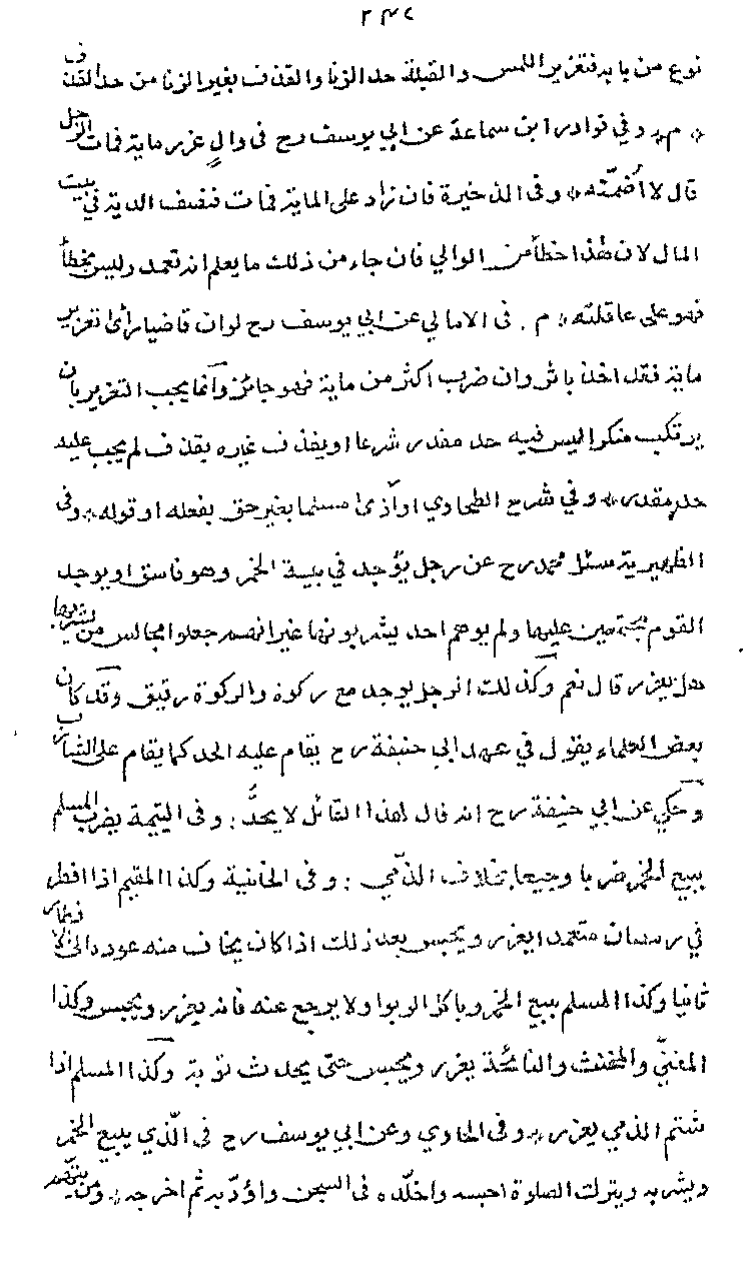 ٢٣٤
نوع من بابه فتعزير اللمس والقبلة حد الزنا والقذف بغير الزنا من حد القذف
* م * وفي نوادر ابن سماعة عن ابي يوسف رح في والٍ عزر ماية فمات الرجل
قال لا اضمّنه * وفي الذخيرة فان زاد على الماية فمات فنصف الدية في بيت
المال لان هذا خطأ من الوالي فان جاء من ذلك ما يعلم انه تعمد وليس بخطأ
فهو على عاقلته * م . في الامالي عن ابي يوسف رح لو ان قاضيا رأى تعزير
ماية فقد اخذ باثر وان ضرب اكثر من ماية فهو جائز وانما يجب التعزير بان
يرتكب منكرا ليس فيه حد مقدر شرعا او يقذف غيره بقذف لم يجب عليه
حد مقدر * وفي شرح الطحاوي او آذى مسلما بغير حق بفعله او قوله * وفي
الظهيرية سئل محمد رح عن رجل يؤجد في بيته الخمر وهو فاسق او يوجد
القوم مجتمعين عليها ولم يوهم احد يشربونها غير انهم جعلوا مجالس من يشربها
هل يعزر قال نعم وكذلك الرجل يوجد مع ركوة والركوة رقيق وقد كان
بعض العلماء يقول في عهد ابي حنيفة رح يقام عليه الحد كما يقام على الشارب
وحكي عن ابي حنيفة رح انه قال لهذا القائل لا يحدُّ : وفي اليتيمة يضرب المسلم
ببيع الخمر ضربا وجيعا بخلاف الذمّي : وفي الخانية وكذا المقيم اذا افطر
في رمضان متعمدا يعزر ويحبس بعد ذلك اذا كان يخاف منه عوده الى الافطار
ثانيا وكذا المسلم يبيع الخمر وياكل الربوا ولا يرجع عنه فانه يعزر ويحبس وكذا
المغنيّ والمخنث والنائحة يعزر ويحبس حتى يحدث توبة وكذا المسلم اذا
شتم الذمي يعزر * وفي الحاوي وعن ابي يوسف رح في الّذي يبيع الخمر
ويشربه ويترك الصلوة احبسه واخلّده في السجن واؤدّبه ثم اخرجه * ومن